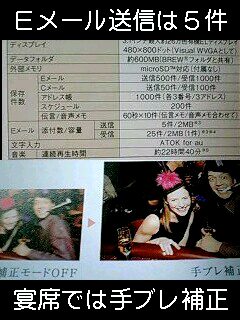 Eメール送信は5件
ディスプレイ
480×800ドット(Visual WVGAとして)
データフォルダ 約600MB(BREW®フォルダと共有)
外部メモリ microSD™対応(付属なし)
保存件数
Eメール 送信500件/受信1000件
Cメール 送信100件/受信100件
アドレス帳 1000件(各3番号/3アドレス)
スケジュール 200件
伝言/音声メモ 60秒×10件(伝言/音声メモ合計)
Eメール 添付数/容量 送信 5件/2MB
受信 25件/2MB(1件)
文字入力 ATOK for au
音楽 連続再生時間 約22時間40分
補正モードOFF
手ブレ補正
宴席では手ブレ補正